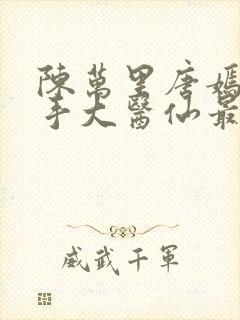 陳萬里唐嫣
手大醫仙最
威武千軍